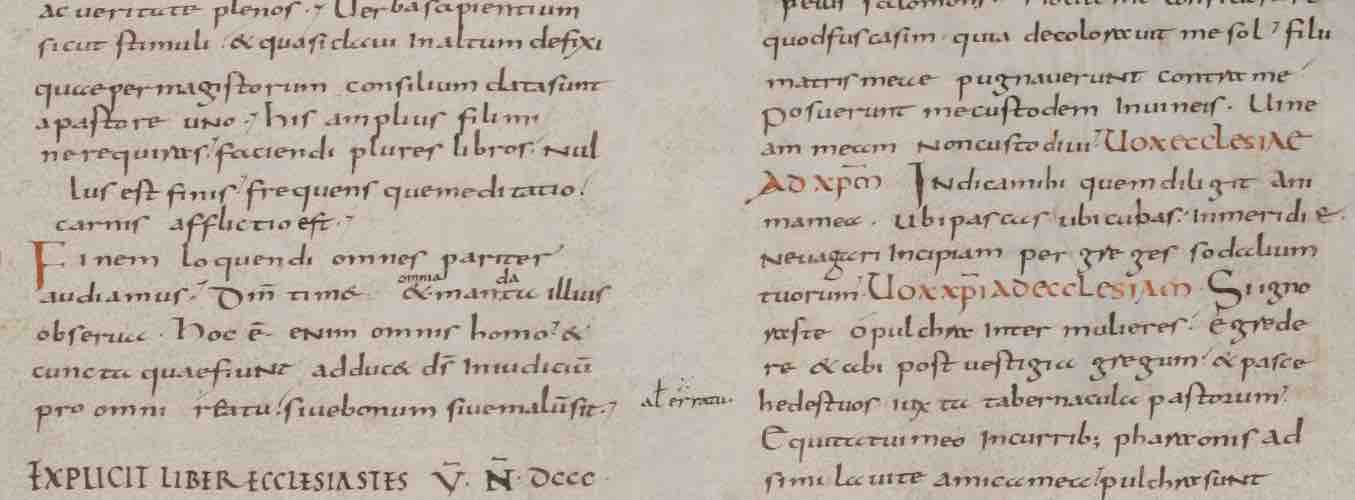 ac ueritate plenos. Uerba sapientium
sicut stimuli. & quasi claui in altum defixi
quae per magistorum consilium data sunt
a pastore uno. his amplius fili mi
ne requiras. faciendi plures libros. nul
lus est finis. frequens que meditatio.
carnis afflictio est.
Finem loquendi omnes pariter
omnia da
audiamus. Dm̄ time & manta illius
obserua. Hoc ē enim omnis homo. &
cuncta quae fiunt adduc& ds̄ in iudiciū
pro omni reatu. siue bonum siue malū sit.
EXPLICIT LIBER ECCLESIASTES V̄. N̄. DCCC
al erratu.
quod fusca sim. quia decolorauit me sol. filii
matris meae pugnauerunt contra me
Posuerunt me custodem in uineis. Uine
am meam non custodiui. Uox ecclesiae
AD xp̄m Indica mihi quem diligit ani
ma mea. ubi pascas ubi cubas. in meridie.
Ne uagari incipiam per greges sodalium
tuorum. Uox xp̄i AD ecclesiam. Si igno
ras te o pulchra inter mulieres. egrede
re & abi post uestigia gregum. & pasce
hedes tuos iuxta tabernacula pastorum.
Equitatui meo in currib; pharaonis ad
similaui te amica mea. pulchrae sunt